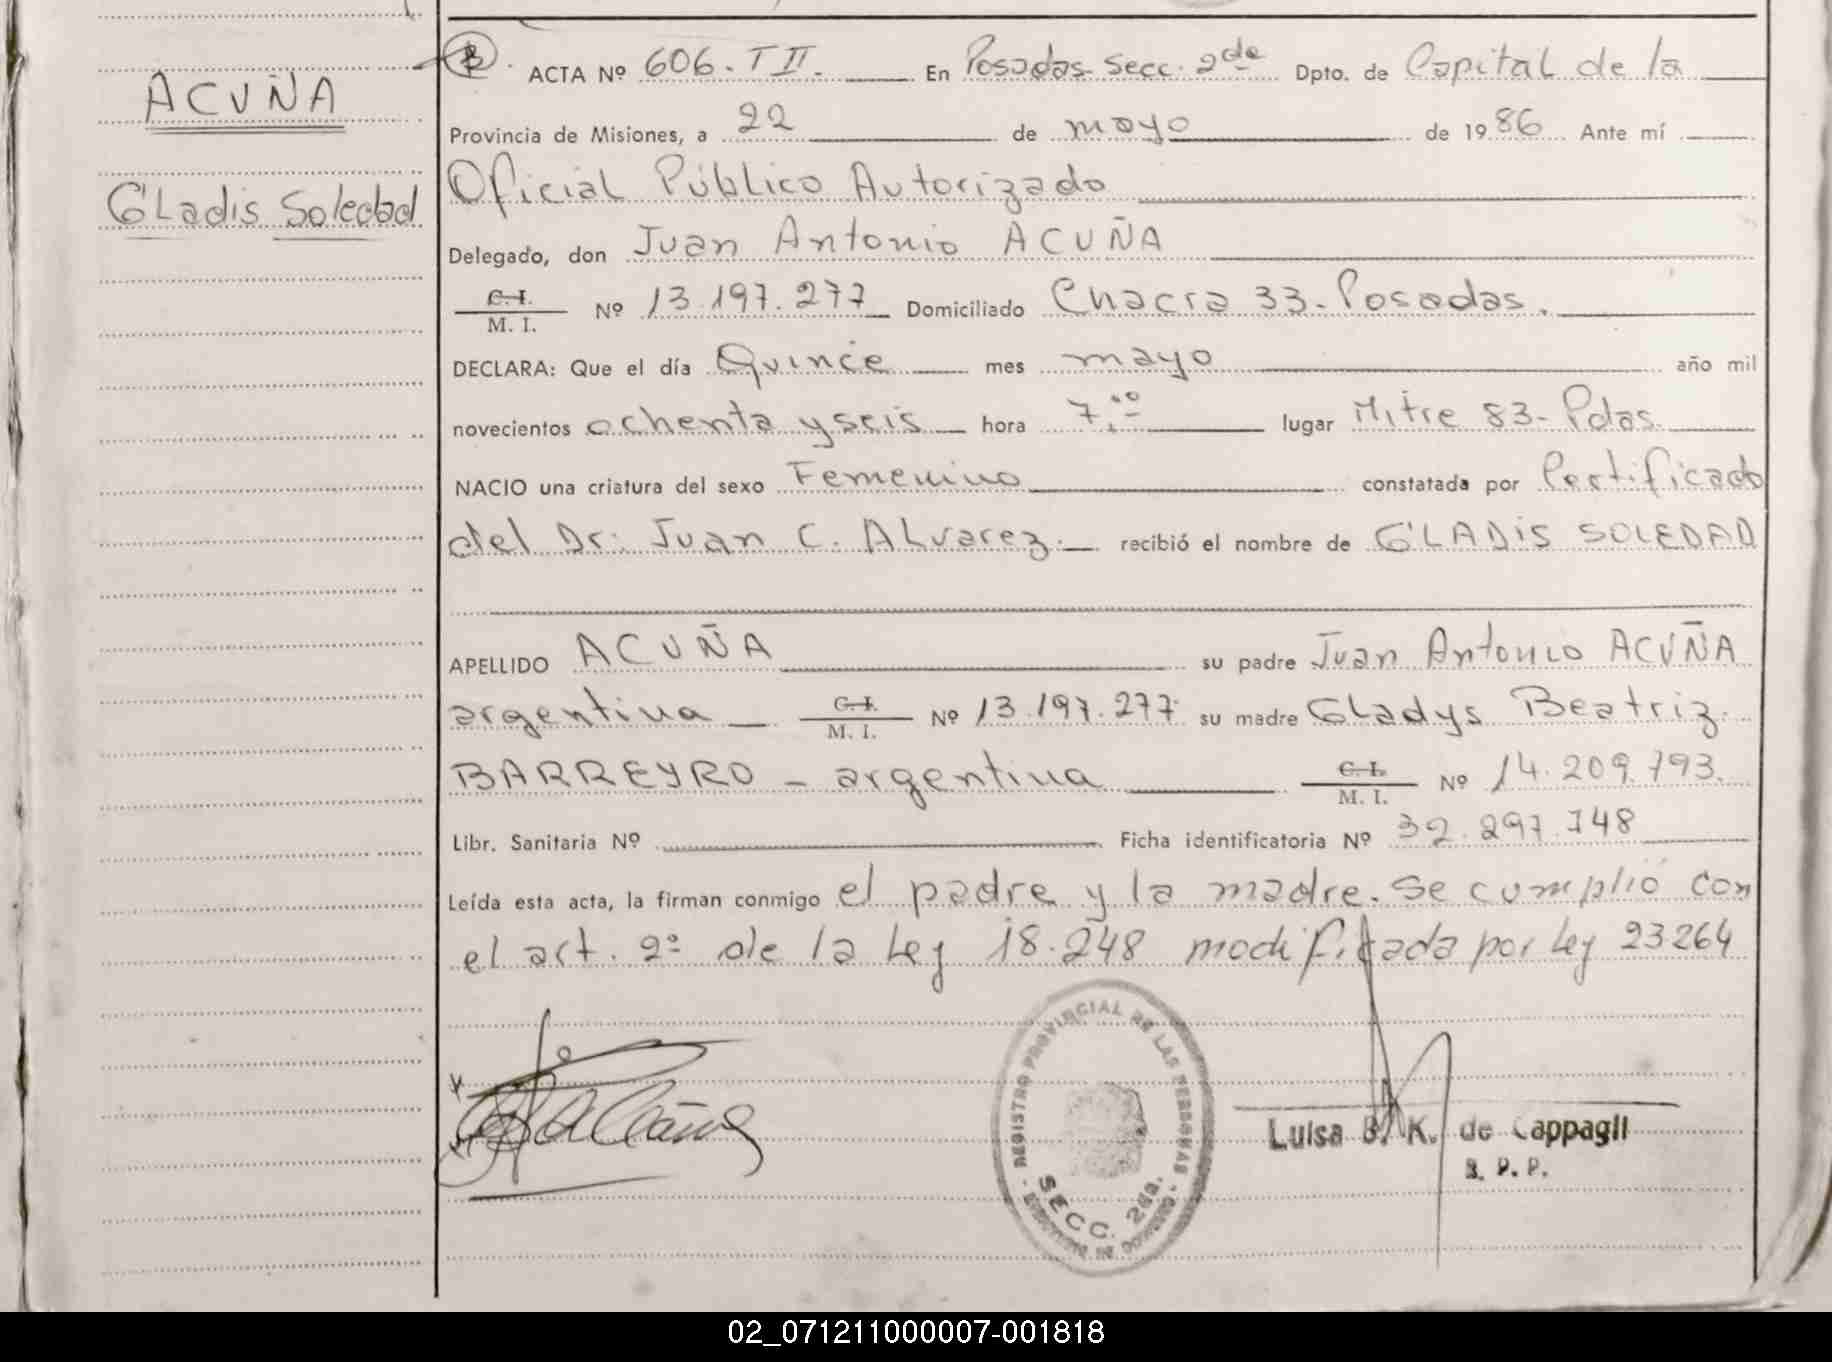 ACUÑA
Gladis Soledad
ACTA Nº 606. T II. En Posadas Secc. 2da Dpto. de Capital de la
Provincia de Misiones, a 22 de mayo de 1986 Ante mí
Oficial Público Autorizado
Delegado, don Juan Antonio ACUÑA
C. I. / M. I. Nº 13.197.277 Domiciliado Chacra 33-Posadas.
DECLARA: Que el día Quince mes mayo año mil
novecientos ochenta y seis hora 7.00 lugar Mitre 83- Pdas.
NACIO una criatura del sexo Femenino constatada por Certificado
del Dr. Juan C. Alvarez.- recibió el nombre de GLADIS SOLEDAD
APELLIDO ACUÑA su padre Juan Antonio ACUÑA
argentina C. I. / M. I. Nº 13.197.277 su madre Gladys Beatriz
BARREYRO - argentina C. I. / M. I. Nº 14.209.793.
Libr. Sanitaria Nº Ficha identificatoria Nº 32.297.748
Leída esta acta, la firman conmigo el padre y la madre. Se cumplió con
el art. 2º de la Ley 18.248 modificada por Ley 23264
REGISTRO PROVINCIAL DE LAS PERSONAS
SECC. 2da.
Luisa B. K. de Cappagli
02_071211000007-001818